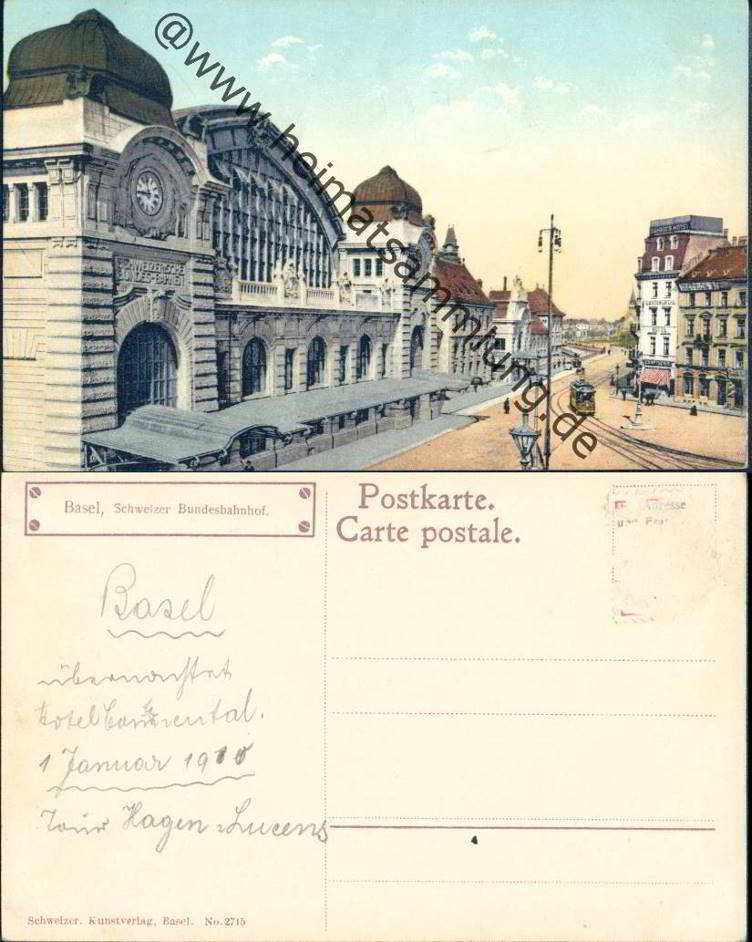 @www.heimatsammlung.de
SCHWEIZERISCHE
BUNDESBAHNEN
Basel, Schweizer Bundesbahnhof.
Postkarte.
Carte postale.
Adresse
Basel
übernachtet
Hotel Continental.
1 Januar 1910
Tour Hagen-Lucens
Schweizer. Kunstverlag, Basel. No. 2715